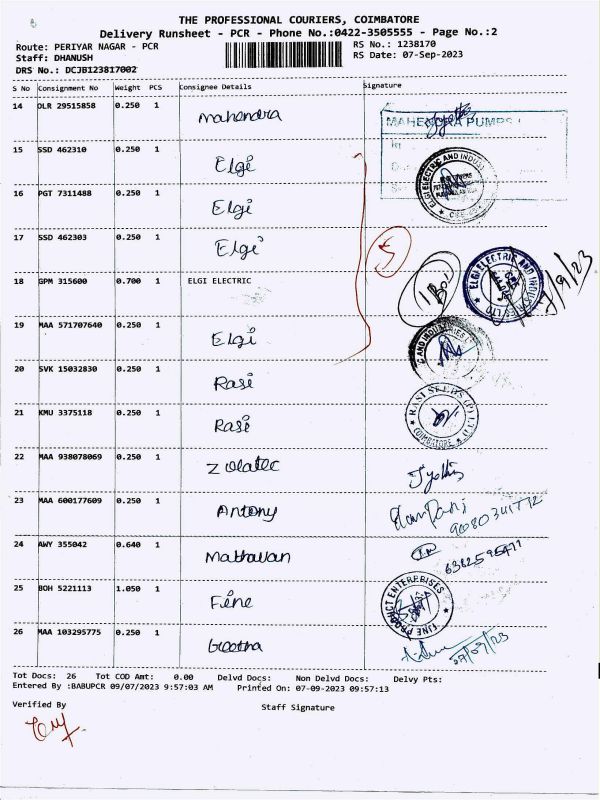 THE PROFESSIONAL COURIERS, COIMBATORE
Delivery Runsheet - PCR - Phone No.:0422-3505555 - Page No.:2
Route: PERIYAR NAGAR - PCR RS No.: 1238170
Staff: DHANUSH RS Date: 07-Sep-2023
DRS No.: DCJB123817002
S No Consignment No Weight PCS Consignee Details Signature
14 DLR 29515858 0.250 1 Mahendra
MAHENDRA PUMPS
15 SSD 462310 0.250 1 Elgi
ELGI ELECTRIC AND INDUS
16 PGT 7311488 0.250 1 Elgi
17 SSD 462303 0.250 1 Elgi
5
18 GPM 315600 0.700 1 ELGI ELECTRIC
1 Box
ELGI ELECTRIC AND INDUSTRIES LTD
7/9/23
19 MAA 571707640 0.250 1 Elgi
C AND INDUSTRIES
20 SVK 15032830 0.250 1 Rasi
RASI SEEDS (P) LTD
COIMBATORE
21 KMU 3375118 0.250 1 Rasi
22 MAA 938078069 0.250 1 Jyothi
23 MAA 600177609 0.250 1 Antony
24 AWY 355042 0.640 1 Mathavan
6382595477
25 BOH 5221113 1.050 1 Fine
FINE PRODUCT ENTERPRISES
26 MAA 103295775 0.250 1 Geetha
07/09/23
Tot Docs: 26 Tot COD Amt: 0.00 Delvd Docs: Non Delvd Docs: Delvy Pts:
Entered By :BABUPCR 09/07/2023 9:57:03 AM Printed On: 07-09-2023 09:57:13
Verified By Staff Signature